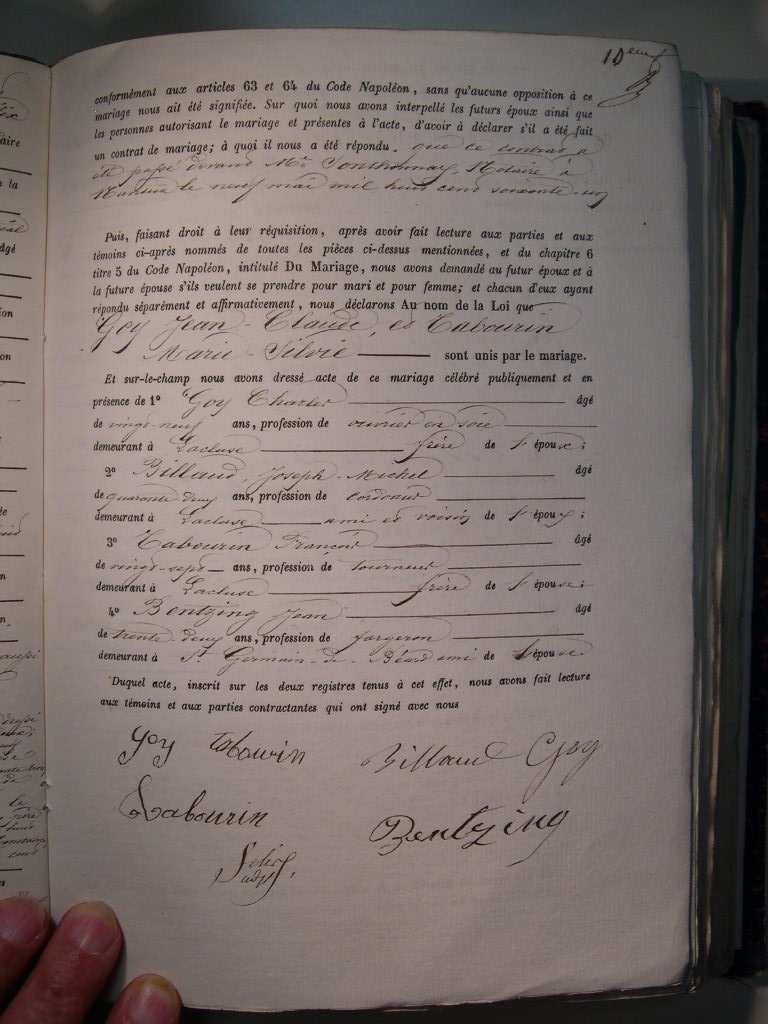 10eme
conformément aux articles 63 et 64 du Code Napoléon, sans qu'aucune opposition à ce
mariage nous ait été signifiée. Sur quoi nous avons interpellé les futurs époux ainsi que
les personnes autorisant le mariage et présentes à l'acte, d'avoir à déclarer s'il a été fait
un contrat de mariage; à quoi il nous a été répondu. que ce contrat a
été passé devant Me Notaire à
Nantua le neuf mai mil huit cent soixante-un
Puis, faisant droit à leur réquisition, après avoir fait lecture aux parties et aux
témoins ci-après nommés de toutes les pièces ci-dessus mentionnées, et du chapitre 6
titre 5 du Code Napoléon, intitulé Du Mariage, nous avons demandé au futur époux et à
la future épouse s'ils veulent se prendre pour mari et pour femme; et chacun d'eux ayant
répondu séparément et affirmativement, nous déclarons Au nom de la Loi que
Goy Jean-Claude, et Tabourin
Marie-Silvie sont unis par le mariage.
Et sur-le-champ nous avons dressé acte de ce mariage célébré publiquement et en
présence de 1° Goy Charles âgé
de vingt-neuf ans, profession de ouvrier en soie
demeurant à Lacluse frère de l'époux;
2° Billaud, Joseph-Michel âgé
de quarante deux ans, profession de cordonnier
demeurant à Lacluse ami et voisin de l'époux;
3° Tabourin François âgé
de vingt-sept ans, profession de tourneur
demeurant à Lacluse frère de l'épouse;
4° Bentzing Jean âgé
de trente-deux ans, profession de forgeron
demeurant à St Germain-de-Béard ami de l'épouse
Duquel acte, inscrit sur les deux registres tenus à cet effet, nous avons fait lecture
aux témoins et aux parties contractantes qui ont signé avec nous
Goy Tabourin Billaud Goy
Tabourin Bentzing